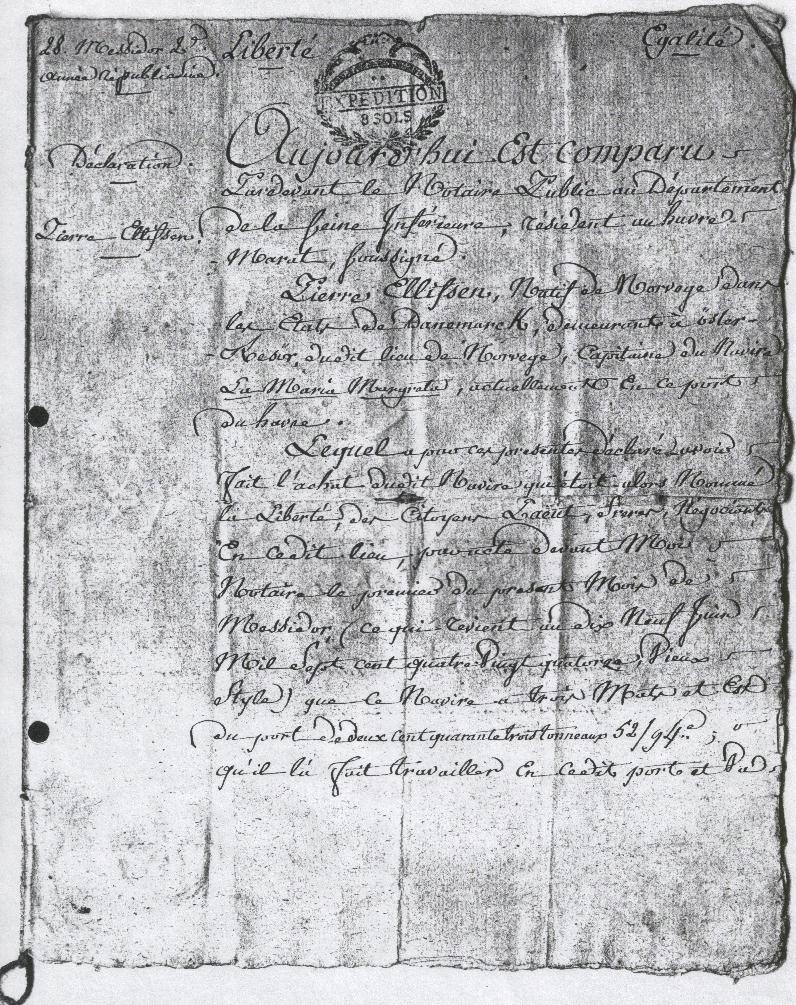 28. Messidor 2e.
année républicaine.
Liberté
Egalité
EXPEDITION
8 SOLS
Déclaration.
Pierre Ellissen.
Aujourd'hui Est comparu
Pardevant le Notaire Public au Département
de la Seine Inférieure, résident au havre
Marat, soussigné.
Pierre Ellissen, Natif de Norvege dans
les Etats de Danemarck, demeurant à öster-
Resör, dudit lieu de Norvege, Capitaine du Navire
La Maria Margreta, actuellement En ce port
du havre.
Lequel a par ces présentes déclaré avoir
fait l'achat dudit Navire qui étoit alors Nommé
la Liberté, des Citoyens freres, Négociants
En cedit lieu, par acte devant Moi
Notaire le premier du présent Mois de
Messidor, (ce qui revient au dix Neuf Juin
Mil Sept cent quatre Vingt quatorze, Vieux
Style) que ce Navire a trois Mats et Est
du port de deux cent quarante trois tonneaux 52/94e;
qu'il l'a fait travailler En cedit port et